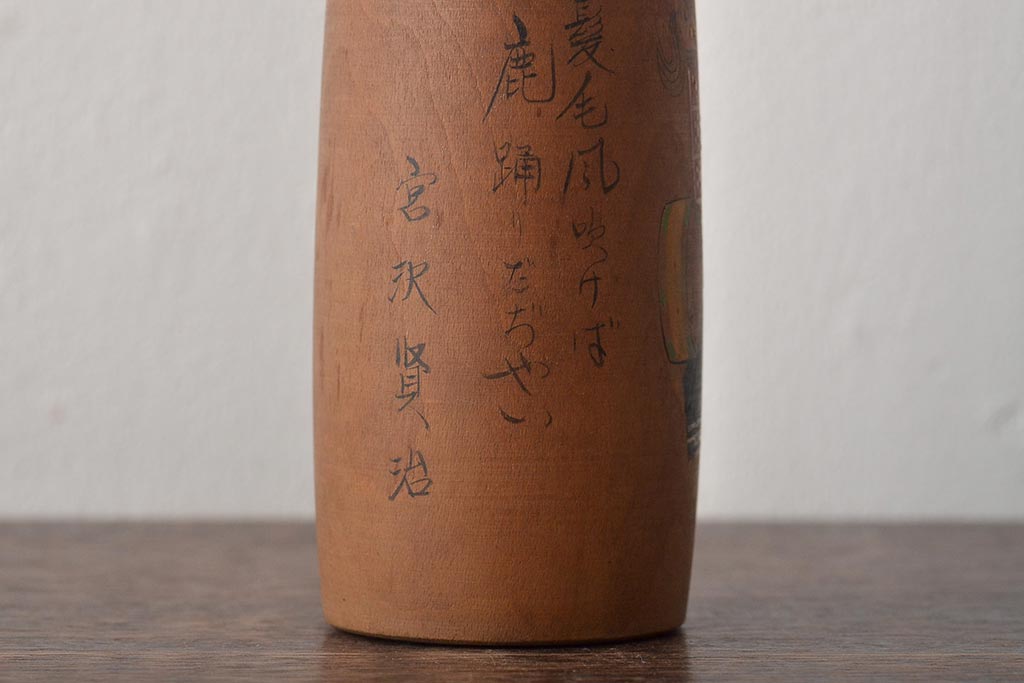 髪毛風吹けば
鹿踊りだぢやい
宮沢賢治